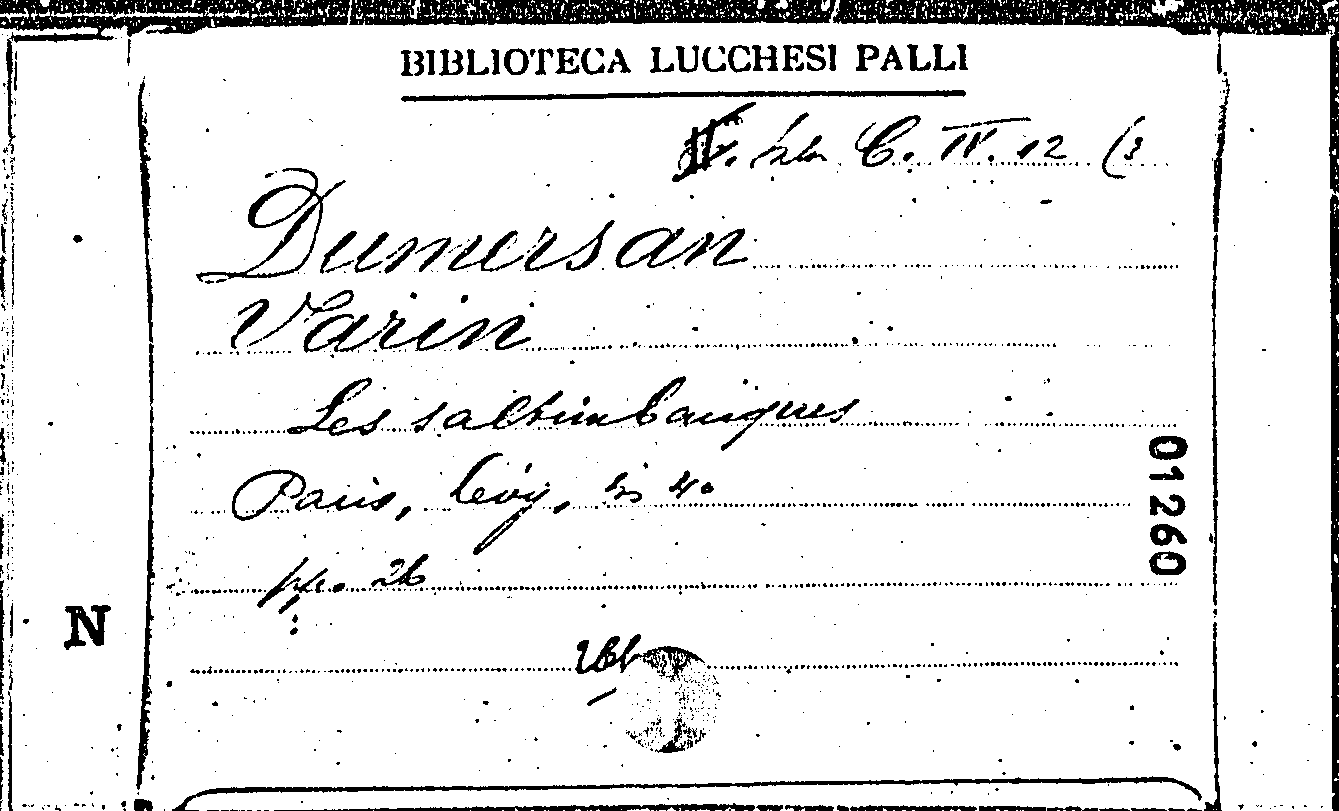 BIBLIOTECA LUCCHESI PALLI
C. IV. 12 (3
Dumersan
Varin
Les saltimbanques
Paris, Lévy, in 4o
pp. 26
01260
N